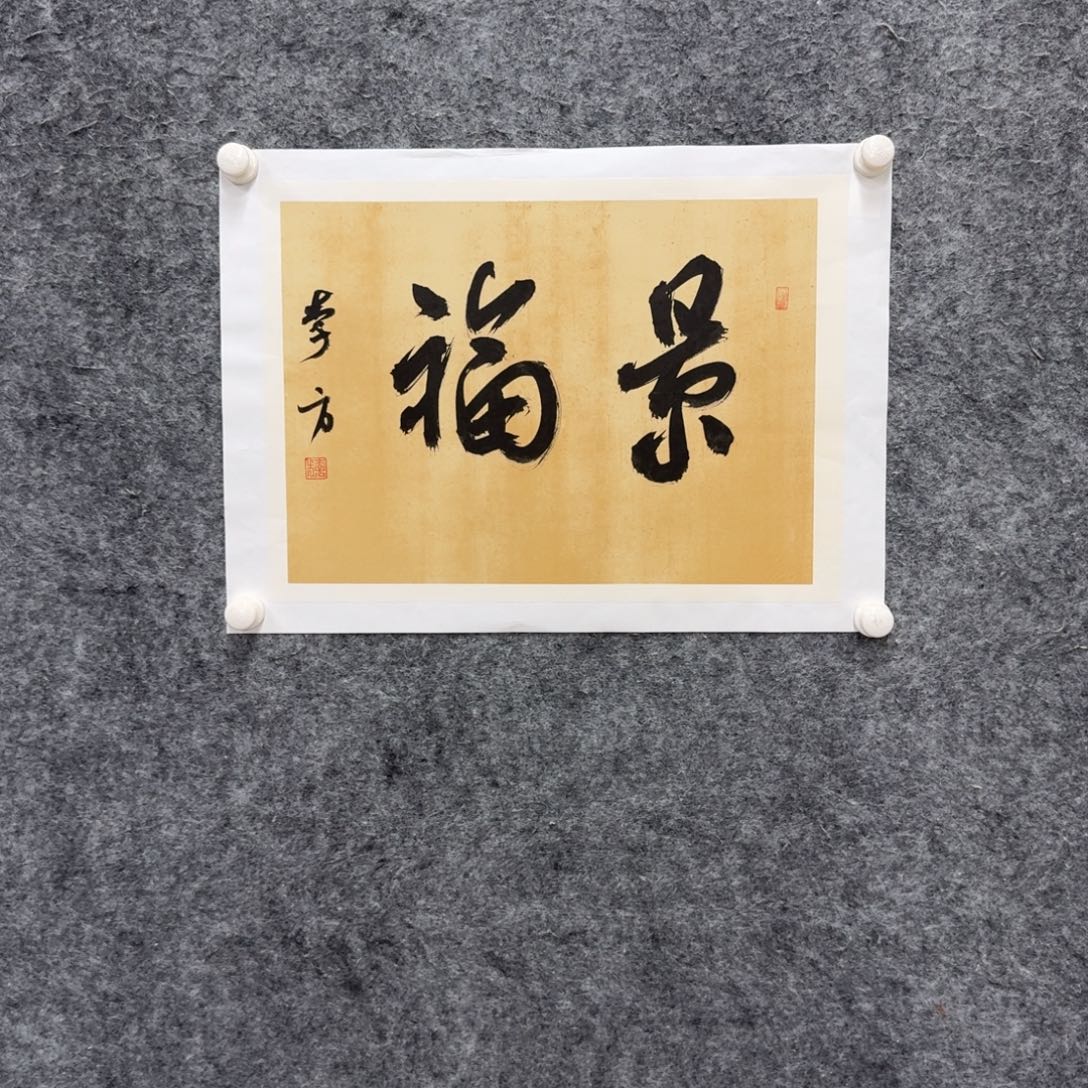 景福
孝方